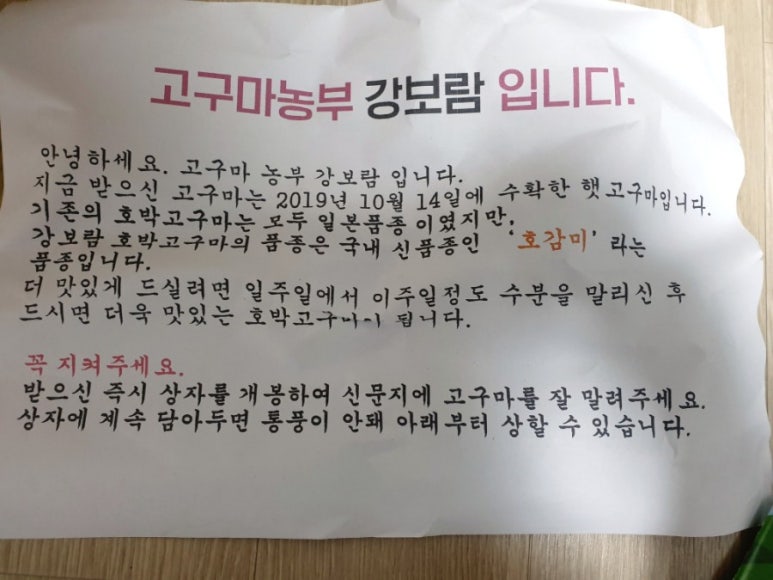 고구마농부 강보람 입니다.
안녕하세요. 고구마 농부 강보람 입니다.
지금 받으신 고구마는 2019년 10월 14일에 수확한 햇고구마입니다.
기존의 호박고구마는 모두 일본품종이였지만;
강보람 호박고구마의 품종은 국내 신품종인 '호감미' 라는
품종입니다.
더 맛있게 드실려면 일주일에서 이주일정도 수분을 말리신 후
드시면 더욱 맛있는 됩니다.
꼭 지켜주세요.
받으신 즉시 상자를 개봉하여 신문지에 고구마를 잘 말려주세요.
상자에 계속 담아두면 통풍이 안돼 아래부터 상할 수 있습니다.